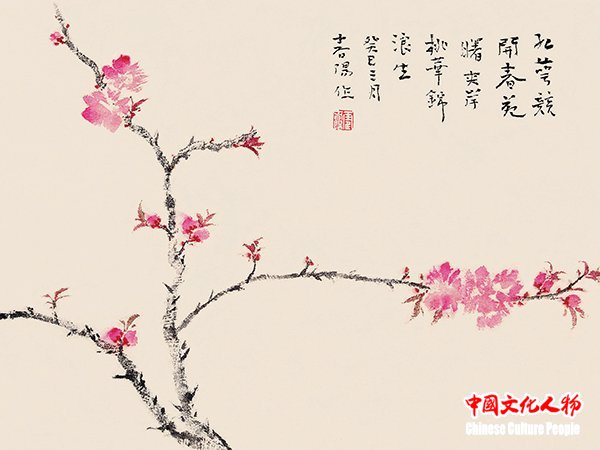 紅萼競
開春苑
曙夾岸
桃華錦
浪生
癸巳三月
作
中國文化人物
Chinese Culture People